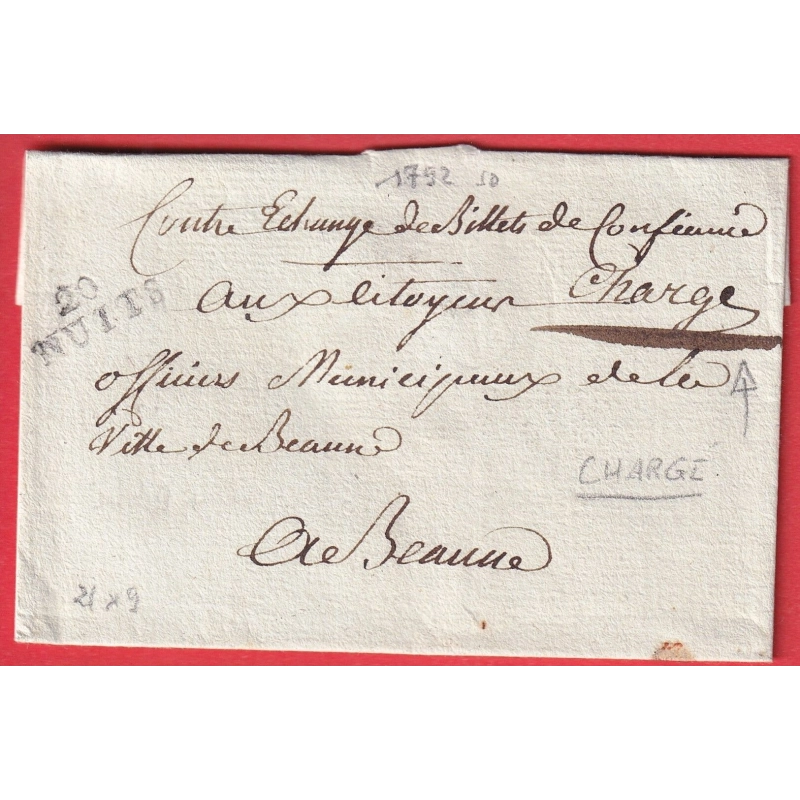 1792 10
Contre Echange de Billets de Confiance
20
NUITS
aux Citoyens Chargé
officiers Municipaux de la
Ville de Beaune
CHARGÉ
A Beaune
21 x 9